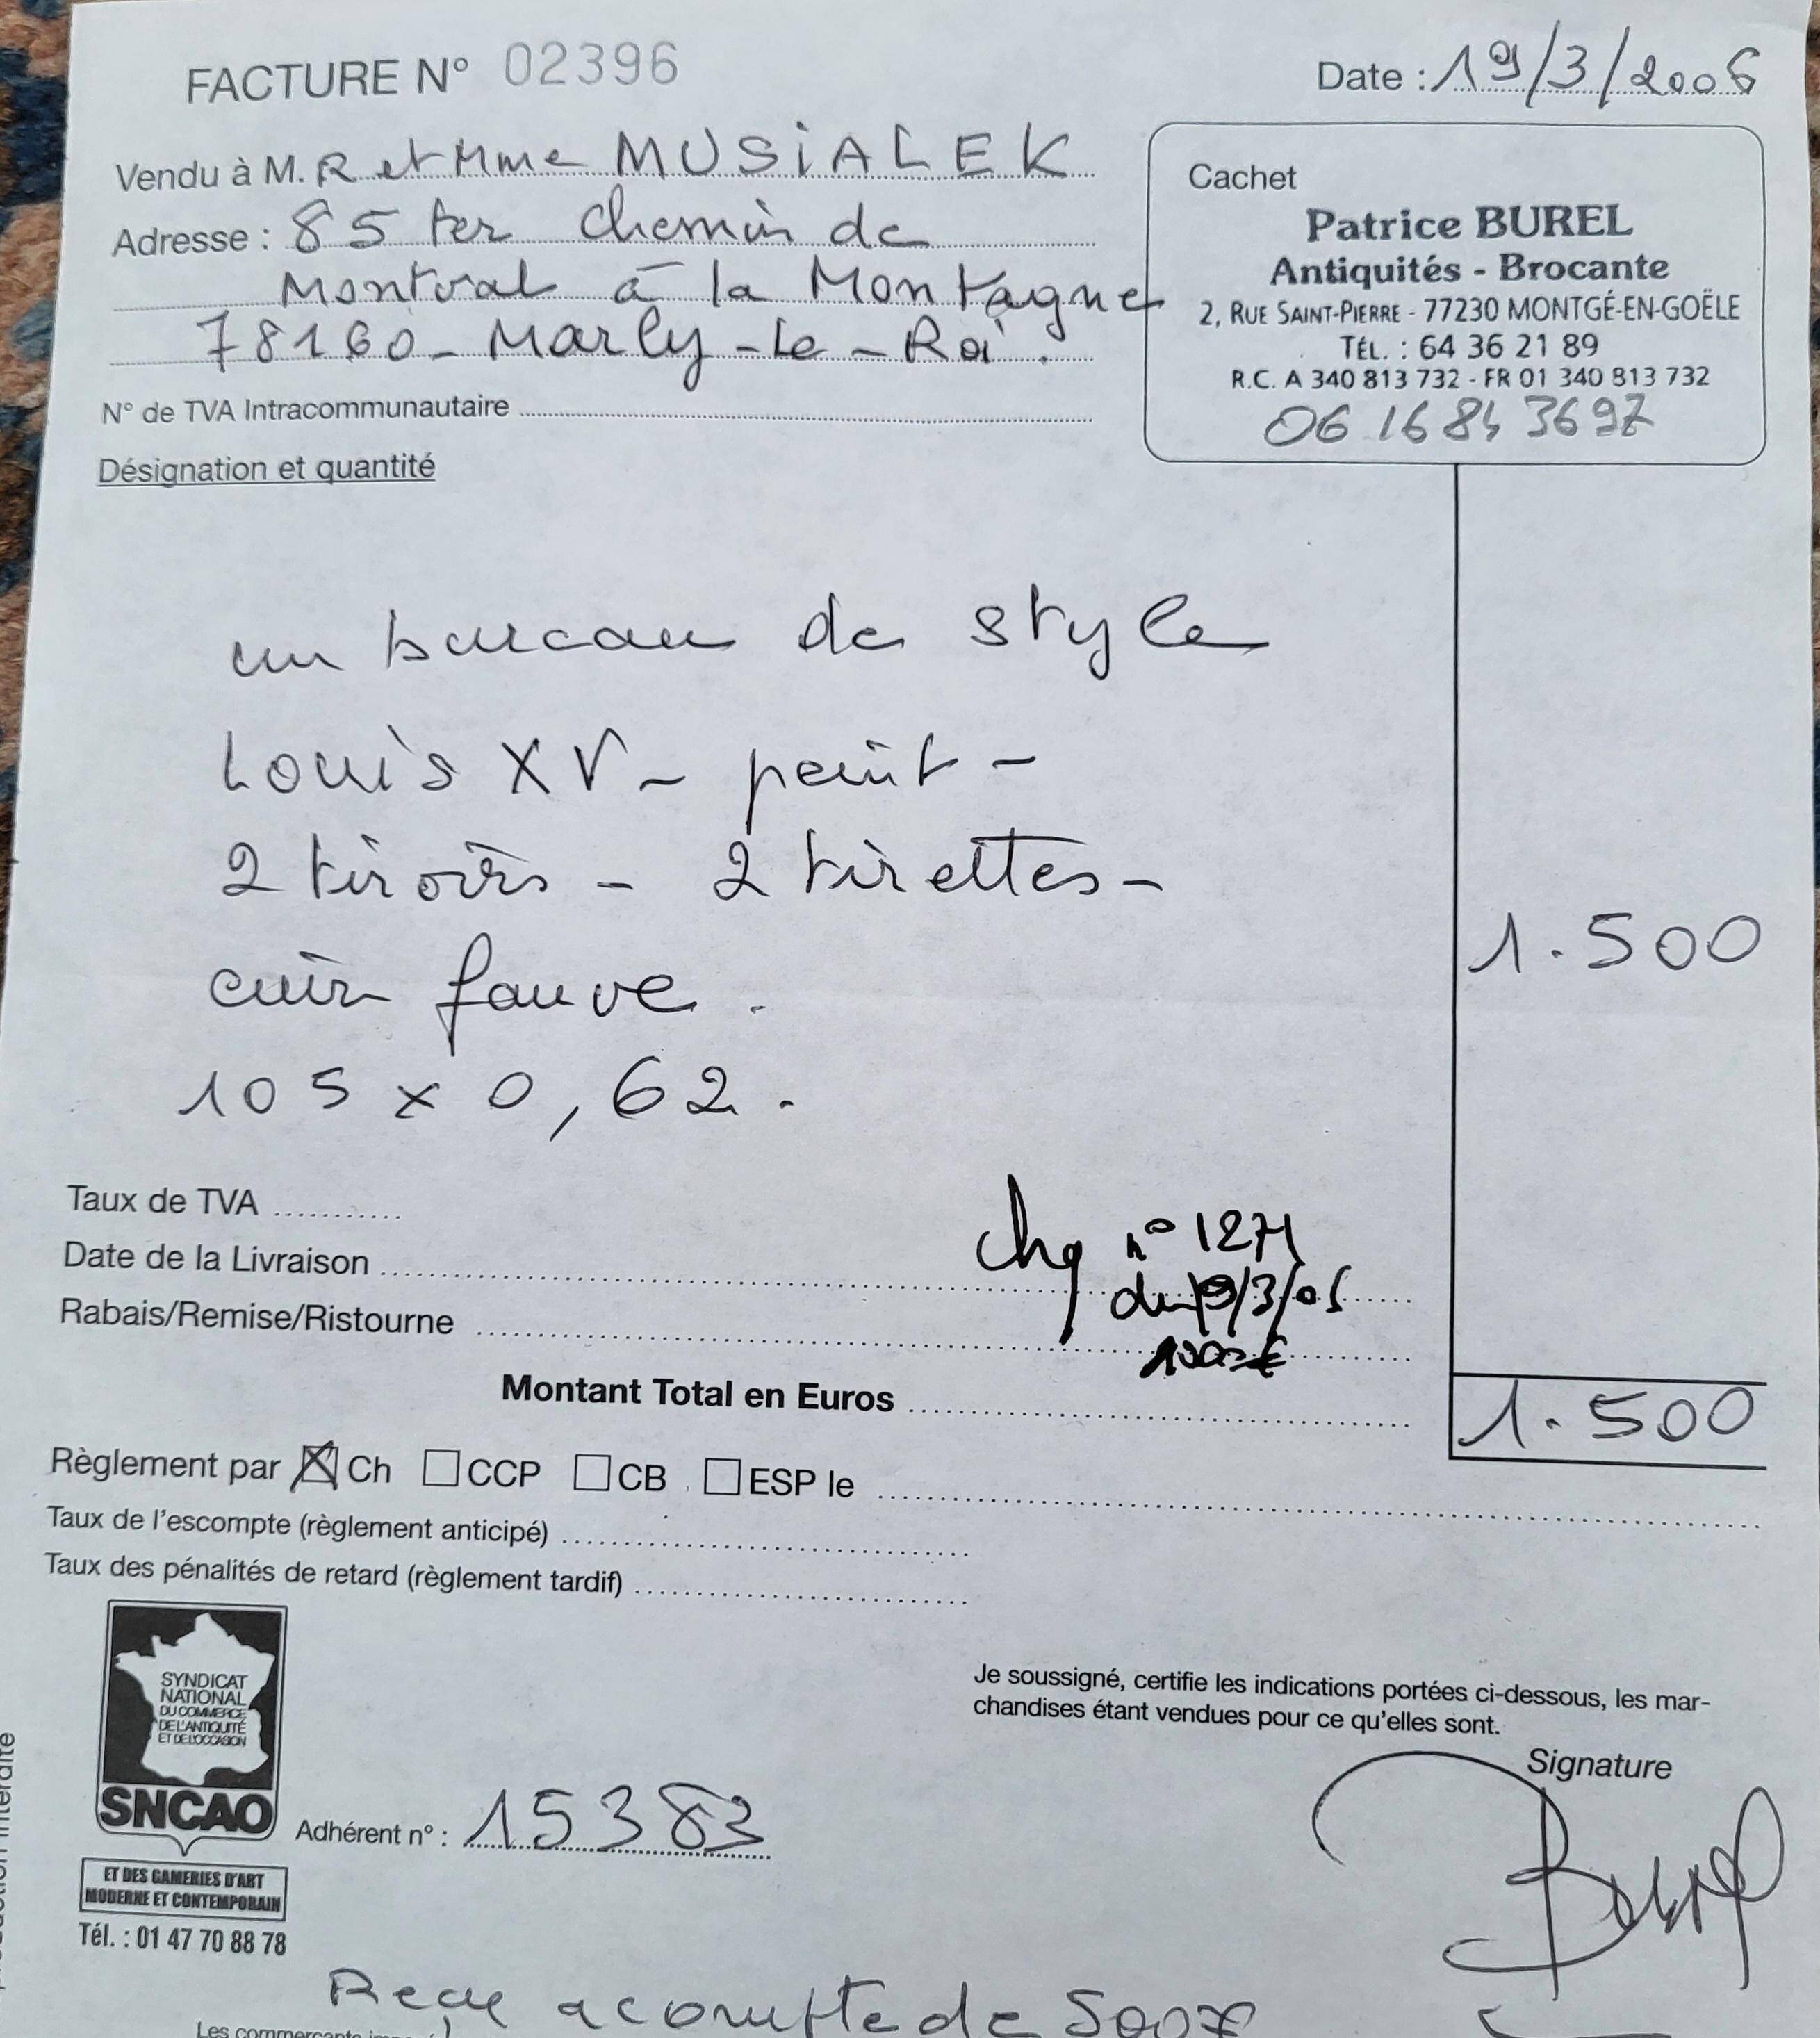 FACTURE N° 02396
Date : 19/3/2006
Vendu à M. R et Mme MUSIALEK
Adresse : 85 ter chemin de
Montval à la Montagne
78160 - Marly - Le - Roi.
N° de TVA Intracommunautaire
Cachet
Patrice BUREL
Antiquités - Brocante
2, RUE SAINT-PIERRE - 77230 MONTGÉ-EN-GOËLE
TÉL. : 64 36 21 89
R.C. A 340 813 732 - FR 01 340 813 732
06 16 84 36 97
Désignation et quantité
un bureau de style
Louis XV - peint -
2 tiroirs - 2 tirettes -
cuir fauve.
1.500
105 x 0,62.
Taux de TVA
chq n° 1271
Date de la Livraison
du 19/3/06
Rabais/Remise/Ristourne
1000€
Montant Total en Euros
1.500
Règlement par Ch CCP CB ESP le
Taux de l'escompte (règlement anticipé)
Taux des pénalités de retard (règlement tardif)
SYNDICAT
NATIONAL
DU COMMERCE
DE L'ANTIQUITÉ
ET DE L'OCCASION
SNCAO
ET DES GALERIES D'ART
MODERNE ET CONTEMPORAIN
Tél. : 01 47 70 88 78
Adhérent n° : 15383
Je soussigné, certifie les indications portées ci-dessous, les mar-
chandises étant vendues pour ce qu'elles sont.
Signature
Burel
Reçu acompte de 500
Les commerçants
interdite